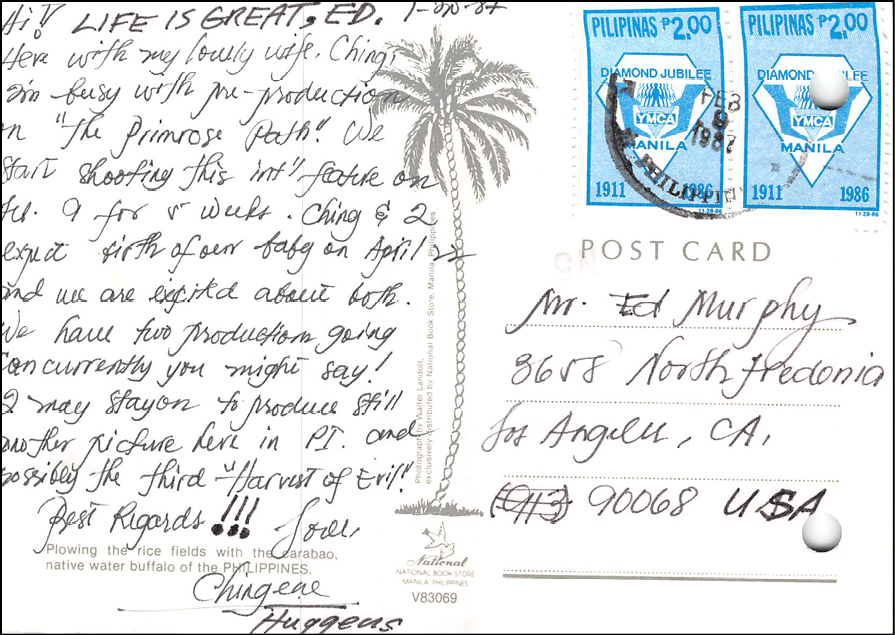 Hi! LIFE IS GREAT, ED.
Here with my lovely wife, Ching,
I'm busy with pre-production
on "The Primrose Path". We
start shooting this int'l feature on
9 for 5 weeks. Ching & I
expect birth of our baby on April 22
and we are excited about both.
We have two productions going
concurrently you might say!
I may stay on to produce still
another picture here in P.I. and
possibly the third "Harvest of Evil"
Best Regards!!! Love,
Chingene
Huggens
Plowing the rice fields with the carabao,
native water buffalo of the PHILIPPINES.
Photograph by Walter Landolt,
exclusively distributed by National Book Store, Manila, Philippines
National
NATIONAL BOOK STORE
MANILA PHILIPPINES
V83069
PILIPINAS ₱2,00
DIAMOND JUBILEE
YMCA
MANILA
1911 1986
11-28-86
PILIPINAS ₱2,00
DIAMOND JUBILEE
YMCA
MANILA
1911 1986
11-28-86
FEB
9
1987
PHILIPPINES
POST CARD
Mr. Ed Murphy
3658 North Fredonia
Los Angeles, CA,
90068 USA